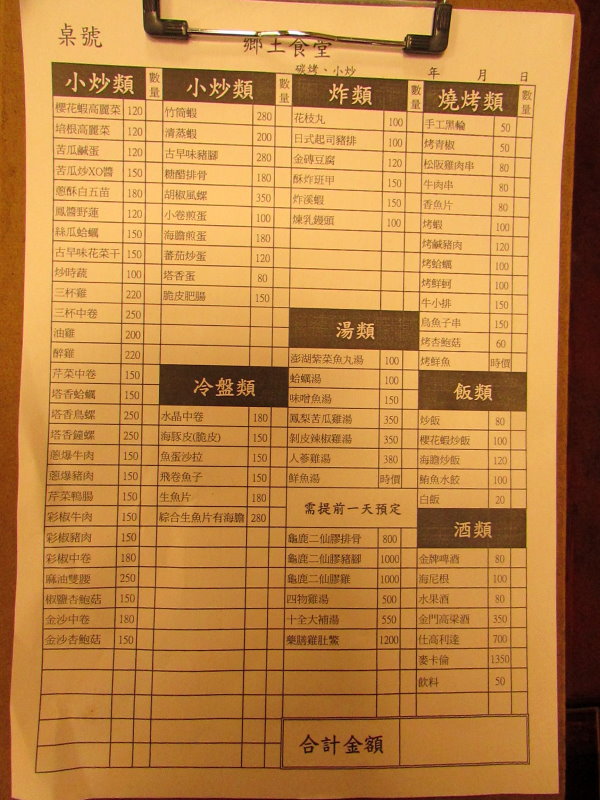 桌號
鄉土食堂
碳烤、小炒
年 月 日
小炒類 數量
櫻花蝦高麗菜 120
培根高麗菜 120
苦瓜鹹蛋 120
苦瓜炒XO醬 150
蔥酥白五苗 180
鳳醬野蓮 120
絲瓜蛤蠣 150
古早味花菜干 150
炒時蔬 100
三杯雞 220
三杯中卷 250
油雞 200
醉雞 220
芹菜中卷 150
塔香蛤蠣 150
塔香鳥螺 250
塔香鐘螺 250
蔥爆牛肉 150
蔥爆豬肉 150
芹菜鴨腸 150
彩椒牛肉 150
彩椒豬肉 150
彩椒中卷 180
麻油雙腰 250
椒鹽杏鮑菇 150
金沙中卷 180
金沙杏鮑菇 150
小炒類 數量
竹筒蝦 280
清蒸蝦 200
古早味豬腳 280
糖醋排骨 180
胡椒風螺 350
小卷煎蛋 100
海膽煎蛋 180
蕃茄炒蛋 120
塔香蛋 80
脆皮肥腸 150
冷盤類
水晶中卷 180
海豚皮(脆皮) 150
魚蛋沙拉 150
飛卷魚子 150
生魚片 180
綜合生魚片有海膽 280
炸類 數量
花枝丸 100
日式起司豬排 100
金磚豆腐 120
酥炸班甲 150
炸溪蝦 150
煉乳饅頭 100
湯類
澎湖紫菜魚丸湯 100
蛤蠣湯 100
味噌魚湯 150
鳳梨苦瓜雞湯 350
剝皮辣椒雞湯 350
人蔘雞湯 380
鮮魚湯 時價
需提前一天預定
龜鹿二仙膠排骨 800
龜鹿二仙膠豬腳 1000
龜鹿二仙膠雞 1000
四物雞湯 500
十全大補湯 550
藥膳雞肚鱉 1200
燒烤類 數量
手工黑輪 50
烤青椒 50
松阪雞肉串 80
牛肉串 80
香魚片 80
烤蝦 100
烤鹹豬肉 120
烤蛤蠣 100
烤鮮蚵 100
牛小排 150
烏魚子串 150
烤杏鮑菇 60
烤鮮魚 時價
飯類
炒飯 80
櫻花蝦炒飯 100
海膽炒飯 120
鮪魚水餃 100
白飯 20
酒類
金牌啤酒 80
海尼根 100
水果酒 80
金門高梁酒 350
仕高利達 700
麥卡倫 1350
飲料 50
合計金額